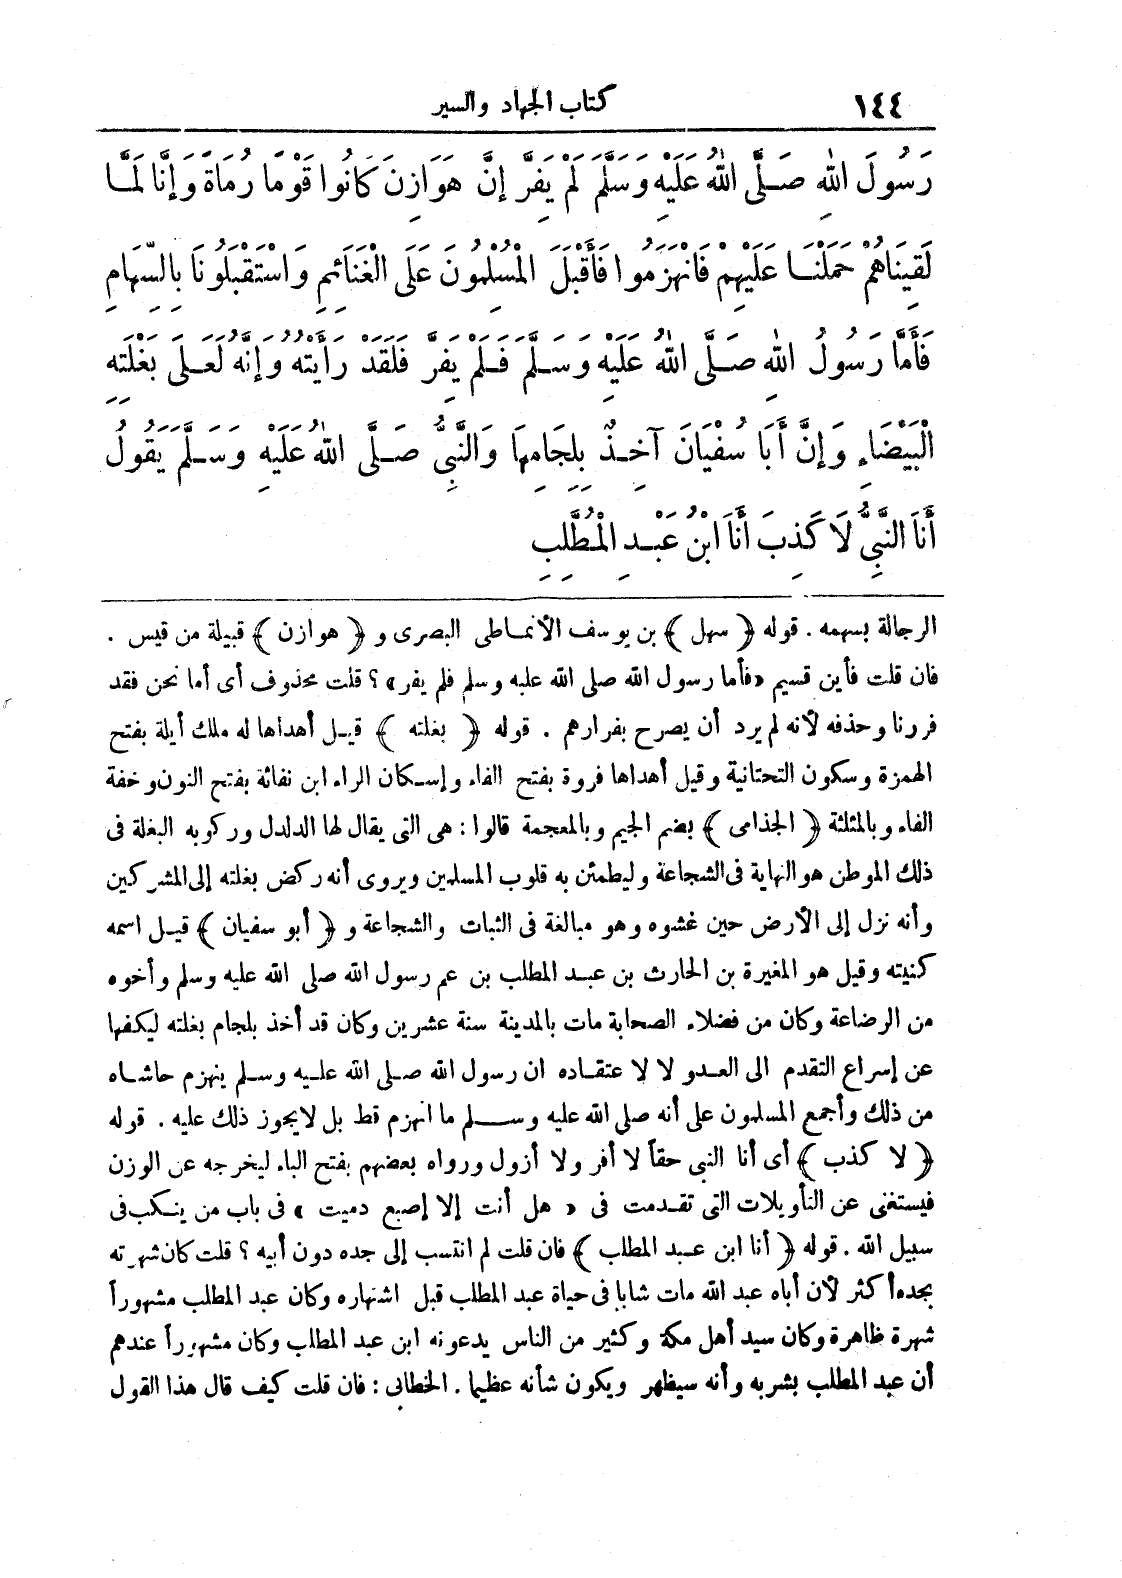 ١٤٤ كتاب الجهاد والسير
رَسُولَ اللهِ صَلَّى اللهُ عَلَيْهِ وَسَلَّمَ لَمْ يَفِرَّ إِنَّ هَوَازِنَ كَانُوا قَوْمًا رُمَاةً وَإِنَّا لَمَّا
لَقِينَاهُمْ حَمَلْنَا عَلَيْهِمْ فَانْهَزَمُوا فَأَقْبَلَ الْمُسْلِمُونَ عَلَى الْغَنَائِمِ وَاسْتَقْبَلُونَا بِالسِّهَامِ
فَأَمَّا رَسُولُ اللهِ صَلَّى اللهُ عَلَيْهِ وَسَلَّمَ فَلَمْ يَفِرَّ فَلَقَدْ رَأَيْتُهُ وَإِنَّهُ لَعَلَى بَغْلَتِهِ
الْبَيْضَاءِ وَإِنَّ أَبَا سُفْيَانَ آخِذٌ بِلِجَامِهَا وَالنَّبِيُّ صَلَّى اللهُ عَلَيْهِ وَسَلَّمَ يَقُولُ
أَنَا النَّبِيُّ لَا كَذِبَ أَنَا ابْنُ عَبْدِ الْمُطَّلِبِ
الرجالة بسهمه . قوله ﴿ سهل ﴾ بن يوسف الأنماطى البصرى و ﴿ هوازن ﴾ قبيلة من قيس .
فان قلت فأين قسيم «فأما رسول الله صلى الله عليه وسلم فلم يفر» ؟ قلت محذوف أى أما نحن فقد
فررنا وحذفه لأنه لم يرد أن يصرح بفرارهم . قوله ﴿ بغلته ﴾ قيل أهداها له ملك أيلة بفتح
الهمزة وسكون التحتانية وقيل أهداها فروة بفتح الفاء وإسكان الراء ابن نفاثة بفتح النون وخفة
الفاء وبالمثلثة ﴿ الجذامى ﴾ بضم الجيم وبالمعجمة قالوا : هى التى يقال لها الدلدل وركوبه البغلة فى
ذلك الموطن هو النهاية فى الشجاعة وليطمئن به قلوب المسلمين ويروى أنه ركض بغلته إلى المشركين
وأنه نزل إلى الأرض حين غشوه وهو مبالغة فى الثبات والشجاعة و ﴿ أبو سفيان ﴾ قيل اسمه
كنيته وقيل هو المغيرة بن الحارث بن عبد المطلب بن عم رسول الله صلى الله عليه وسلم وأخوه
من الرضاعة وكان من فضلاء الصحابة مات بالمدينة سنة عشرين وكان قد أخذ بلجام بغلته ليكفها
عن إسراع التقدم الى العدو لا لا عتقاده ان رسول الله صلى الله عليه وسلم ينهزم حاشاه
من ذلك وأجمع المسلمون على أنه صلى الله عليه وسلم ما انهزم قط بل لايجوز ذلك عليه . قوله
﴿ لا كذب ﴾ أى أنا النبي حقاً لا أفر ولا أزول ورواه بعضهم بفتح الباء ليخرجه عن الوزن
فيستغنى عن التأويلات التى تقدمت فى « هل أنت إلا إصبع دميت » فى باب من ينكب فى
سبيل الله . قوله ﴿ أنا ابن عبد المطلب ﴾ فان قلت لم انتسب إلى جده دون أبيه ؟ قلت كان شهرته
بجده أكثر لأن أباه عبد الله مات شابا فى حياة عبد المطلب قبل اشتهاره وكان عبد المطلب مشهوراً
شهرة ظاهرة وكان سيد أهل مكة وكثير من الناس يدعونه ابن عبد المطلب وكان مشهوراً عندهم
أن عبد المطلب بشربه وأنه سيظهر ويكون شأنه عظيما . الخطابى : فان قلت كيف قال هذا القول